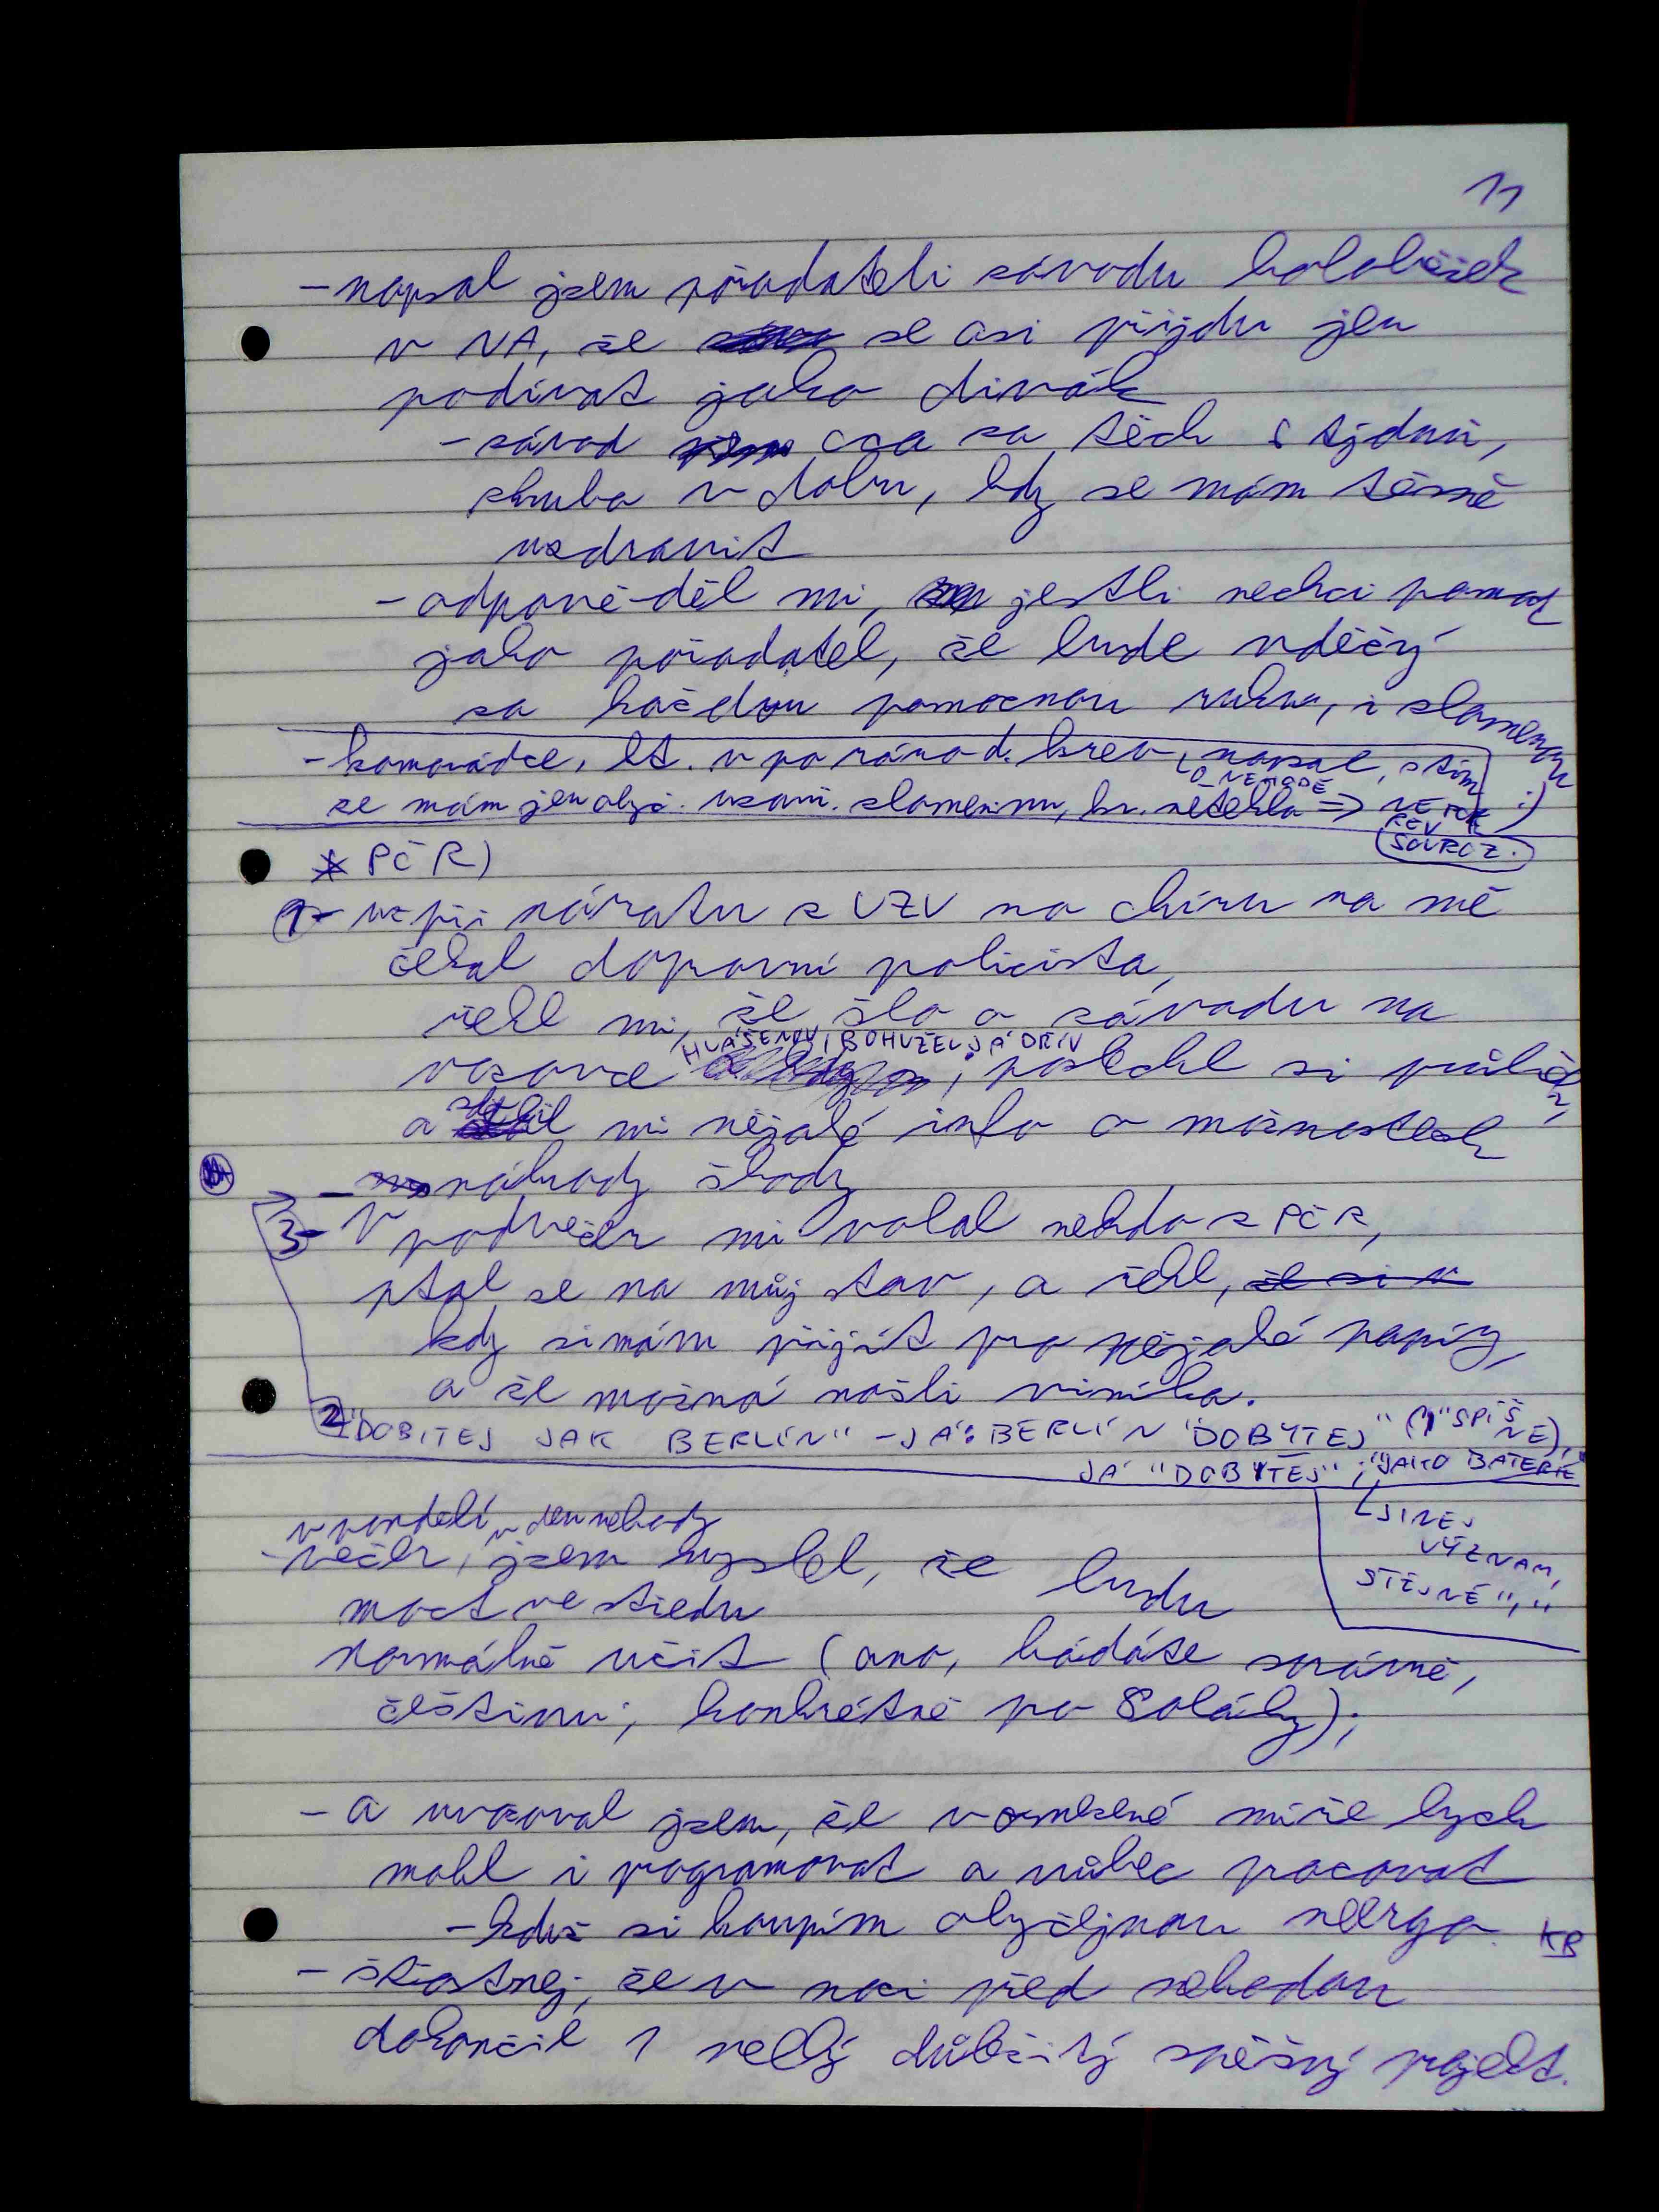 11
- napsal jsem pořadateli závodu koloběžek
v NA, že se asi přijdu jen
podívat jako divák
- závod cca za těch 6 týdnů,
zhruba v dobu, kdy se mám těsně
uzdravit
- odpověděl mi, jestli nechci pomoct
jako pořadatel, že bude vděčný
za každou pomocnou ruku, i zlomenou :)
- kamarádce, kt. v po ráno d. krev, napsal, s tím
O NEHODĚ
že mám jen obyč. uzavř. zlomeninu, kr. netekla =>
SOUROZ.
* PČR)
1 - už při návratu z UZV na chiru na mě
čekal dopravní policista,
řekl mi, že šlo o závadu na
HLÁŠENOU, BOHUŽEL JÁ DŘÍV
vozovce, poslechl si průběh,
a sdělil mi nějaké info o možnostech
náhrady škody
3 - V podvečer mi volal někdo z PČR,
ptal se na můj stav, a řekl,
kdy si mám přijít pro nějaké papíry,
a že možná našli viníka.
2 "DOBITEJ JAK BERLÍN" - JÁ: BERLÍN "DOBYTEJ" ("SPÍŠ NE),
JÁ "DOBITEJ"; "JAKO BATERIE"
JINEJ
VÝZNAM,
STEJNĚ ","
v pondělí v den nehody
- večer, jsem myslel, že budu
moct ve středu
normálně učit (ano, hádáte správně,
češtinu; konkrétně pro Poláky);
- a uvažoval jsem, že v omezené míře bych
mohl i programovat a vůbec pracovat
- když si koupím obyčejnou neergo KB
- šťastnej, že v noci před nehodou
dokončil 1 velký důležitý spěšný projekt.